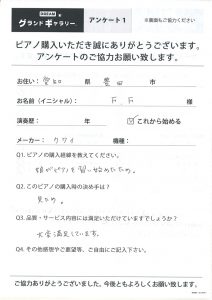 グランドギャラリー アンケート1 ※裏面もご協力ください
ピアノ購入いただき誠にありがとうございます。
アンケートのご協力お願い致します。
お住い： 愛知 県 豊田 市
お名前（イニシャル）： F.F 様
演奏歴： 年 ☑これから始める
メーカー： カワイ 機種：
Q1. ピアノの購入経緯を教えてください。
娘がピアノを習い始めたため。
Q2. このピアノの購入時の決め手は？
見ため。
Q3. 品質・サービス内容には満足いただけていますでしょうか？
大変満足しています。
Q4. その他感想やご要望等、ご自由にご記入下さい。
ご協力ありがとうございました。今後ともよろしくお願い致します。